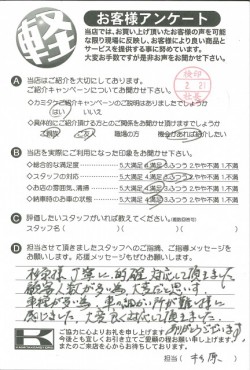 軽
お客様アンケート
当店では、お買い上げ頂いたお客様の声を可能
な限り現場に反映し、お客様により良い商品と
サービスを提供する事に努めています。
大変お手数ですが是非お声をお聞かせ下さい。
検印
2. 21
Ⓐ 当店はご紹介を大切にしております。
ご紹介キャンペーンについてお聞かせ下さい。
◇カミタケご紹介キャンペーンのご説明はありましたでしょうか
はい いいえ
◇具体的にご紹介頂ける方とのご関係をお聞かせ頂けますでしょうか
ご家族 ご友人 職場の方 機会があれば紹介したい
Ⓑ 当店を実際にご利用になった印象をお聞かせ下さい。
◇総合的な満足度 5.大満足 4.満足 3.ふつう 2.やや不満 1.不満
◇スタッフの対応 5.大満足 4.満足 3.ふつう 2.やや不満 1.不満
◇お店の雰囲気、清掃 5.大満足 4.満足 3.ふつう 2.やや不満 1.不満
◇納車時のお車の状態 5.大満足 4.満足 3.ふつう 2.やや不満 1.不満
Ⓒ 評価したいスタッフがいれば教えてください。(複数回答可)
スタッフ名( )( )( )
Ⓓ 担当させて頂きましたスタッフへのご指摘、ご指導メッセージをお
願いします。応援メッセージもぜひお願いします。
丁寧に、的確対応して頂きました
大変だと思います
大変良く対応して頂きました
ありがとうございます
K
ご協力に心よりお礼を申し上げます。
今後とも宜しくお引き立てご愛顧の程お願い申し上げます。
またのご来店を心からお待ちしております。
担当( 杉原 )